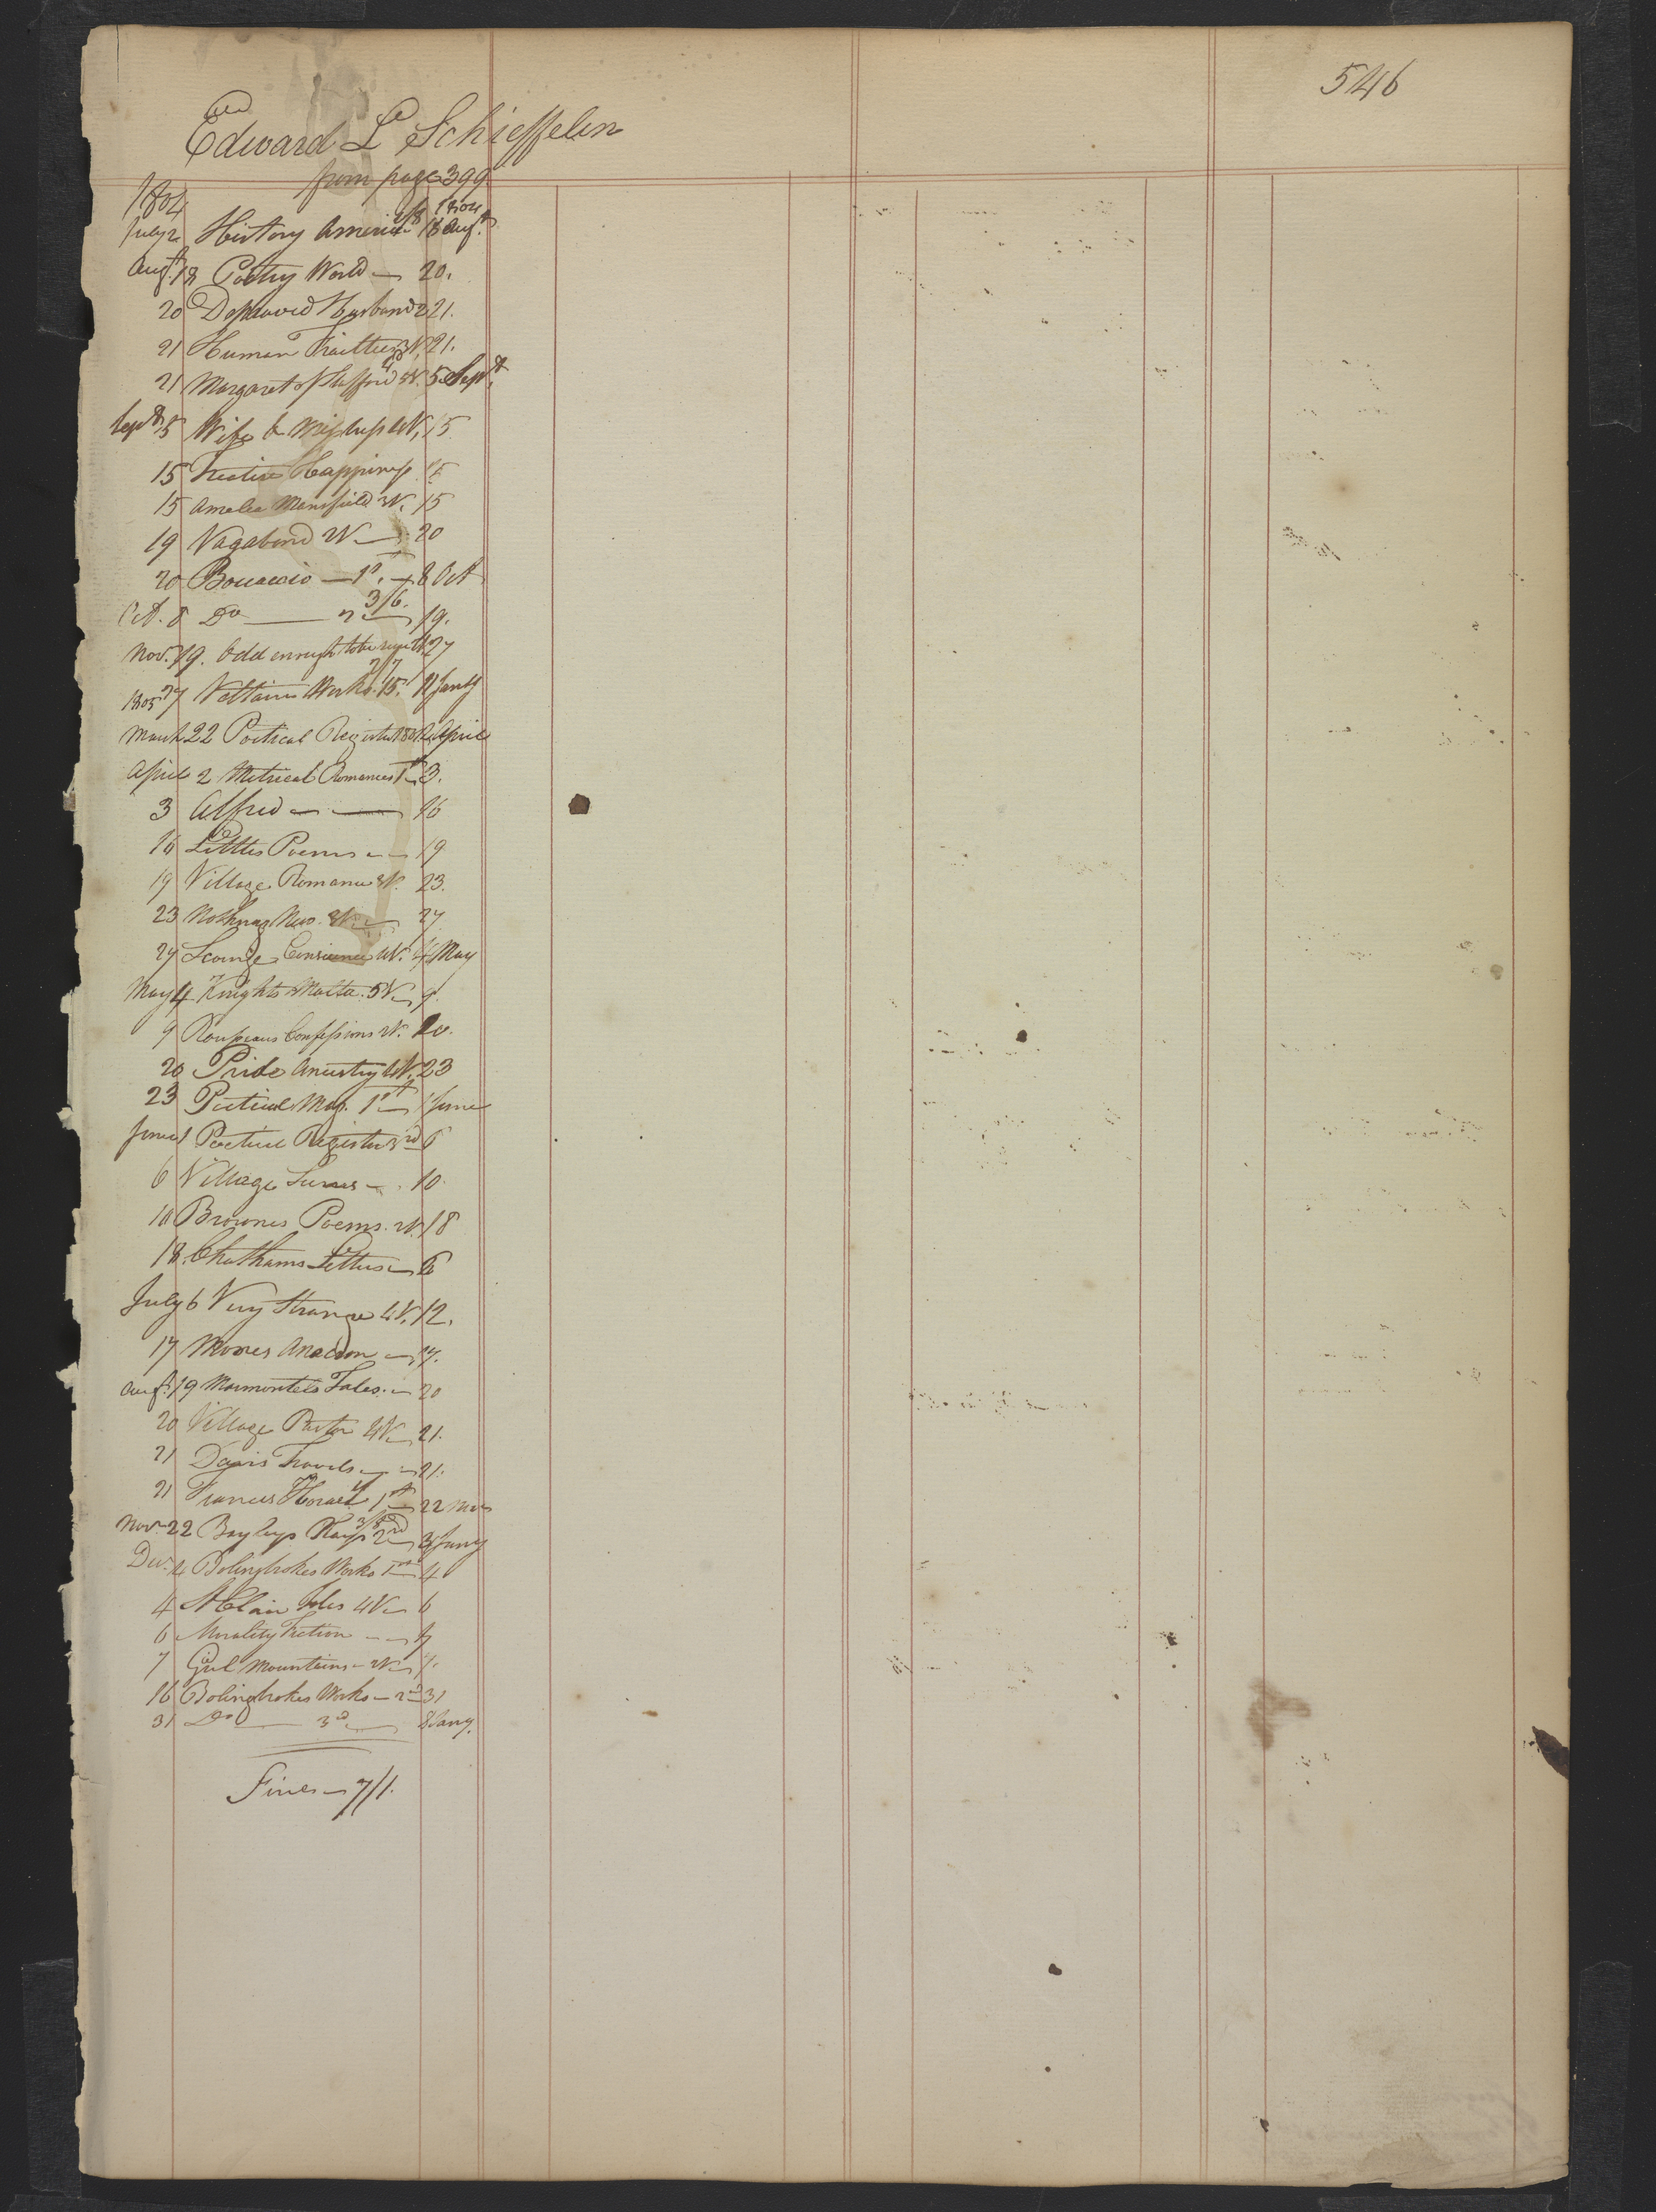 546
Edward L Schieffelin
from page 399
1804
July 2 History America 2/8 18 Augt. 1804
Augt. 18 Poetry World — 20.
20 Depraved Husband 2 21.
21 Human Frailties 3V. 21.
21 Margaret Strafford 5V. 5 Sept.
Sept 5 Wife & Mistress 4V. 15
15 Fictive Happiness 15
15 Amelia Mansfield 3V. 15
19 Vagabond 2V — 20
20 Boccaccio — 1st. — 8 Oct
Oct. 8 Do — 2 — 3/6. 19.
Nov. 19. Odd enough to be sure 27
27 Voltaires Works. 15. 11 Jany
1805
March 22 Poetical Register 2 April
April 2 Metrical Romances 1st 3.
3 Alfred — — 16
16 Littles Poems — — 19
19 Village Romance 3V. 23.
23 Nothing New. 3V. — 27
27 Scourge Conscience 4V. 4 May
May 4 Knights Malta. 5V — 9.
9 Rousseaus Confessions 2V. 20.
20 Pride Ancestry 4V. 23
23 Poetical Mag. 1st — 1 June
June 1 Poetical Register 3rd 6
6 Village Scenes — . 10
10 Brownes Poems. 2V. 18
18. Chathams Letters — 6
July 6 Very Strange 4V. 12.
17 Moores Anacreon — 17.
Augt. 19 Marmontels Tales. — 20
20 Village Pastor 4V — 21.
21 Davis Travels — — 21.
21 Francis Horace 1st — 22 Nov
Nov. 22 Bayleys Plays 2nd — 3 Jany
Dec. 4 Bolingbrokes Works 1st — 4
4 St Clair Isles 4V — 6
6 Morality Fiction — — 7
7 Girl Mountains — 2V — 7.
16 Bolingbrokes Works — 2d 31
31 Do — 3d — 8 Jany.
Fines — 7/1.